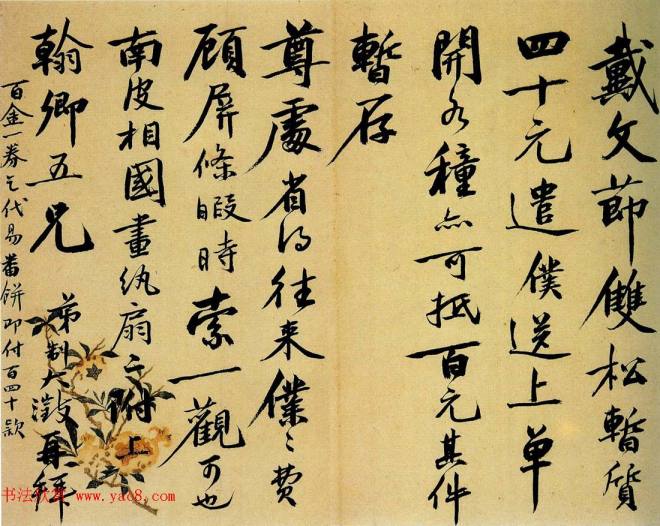 戴文節雙松暫質
四十元遣僕送上單
開各種亦可抵百元其件
暫存
尊處省得往来僕〻費
顧屏條暇時索一觀可也
南皮相國畫紈扇亦附上
翰卿五兄 弟制大澂再拜
百金一券乞代易番餅即付百四十款
书法欣赏 www.yac8.com